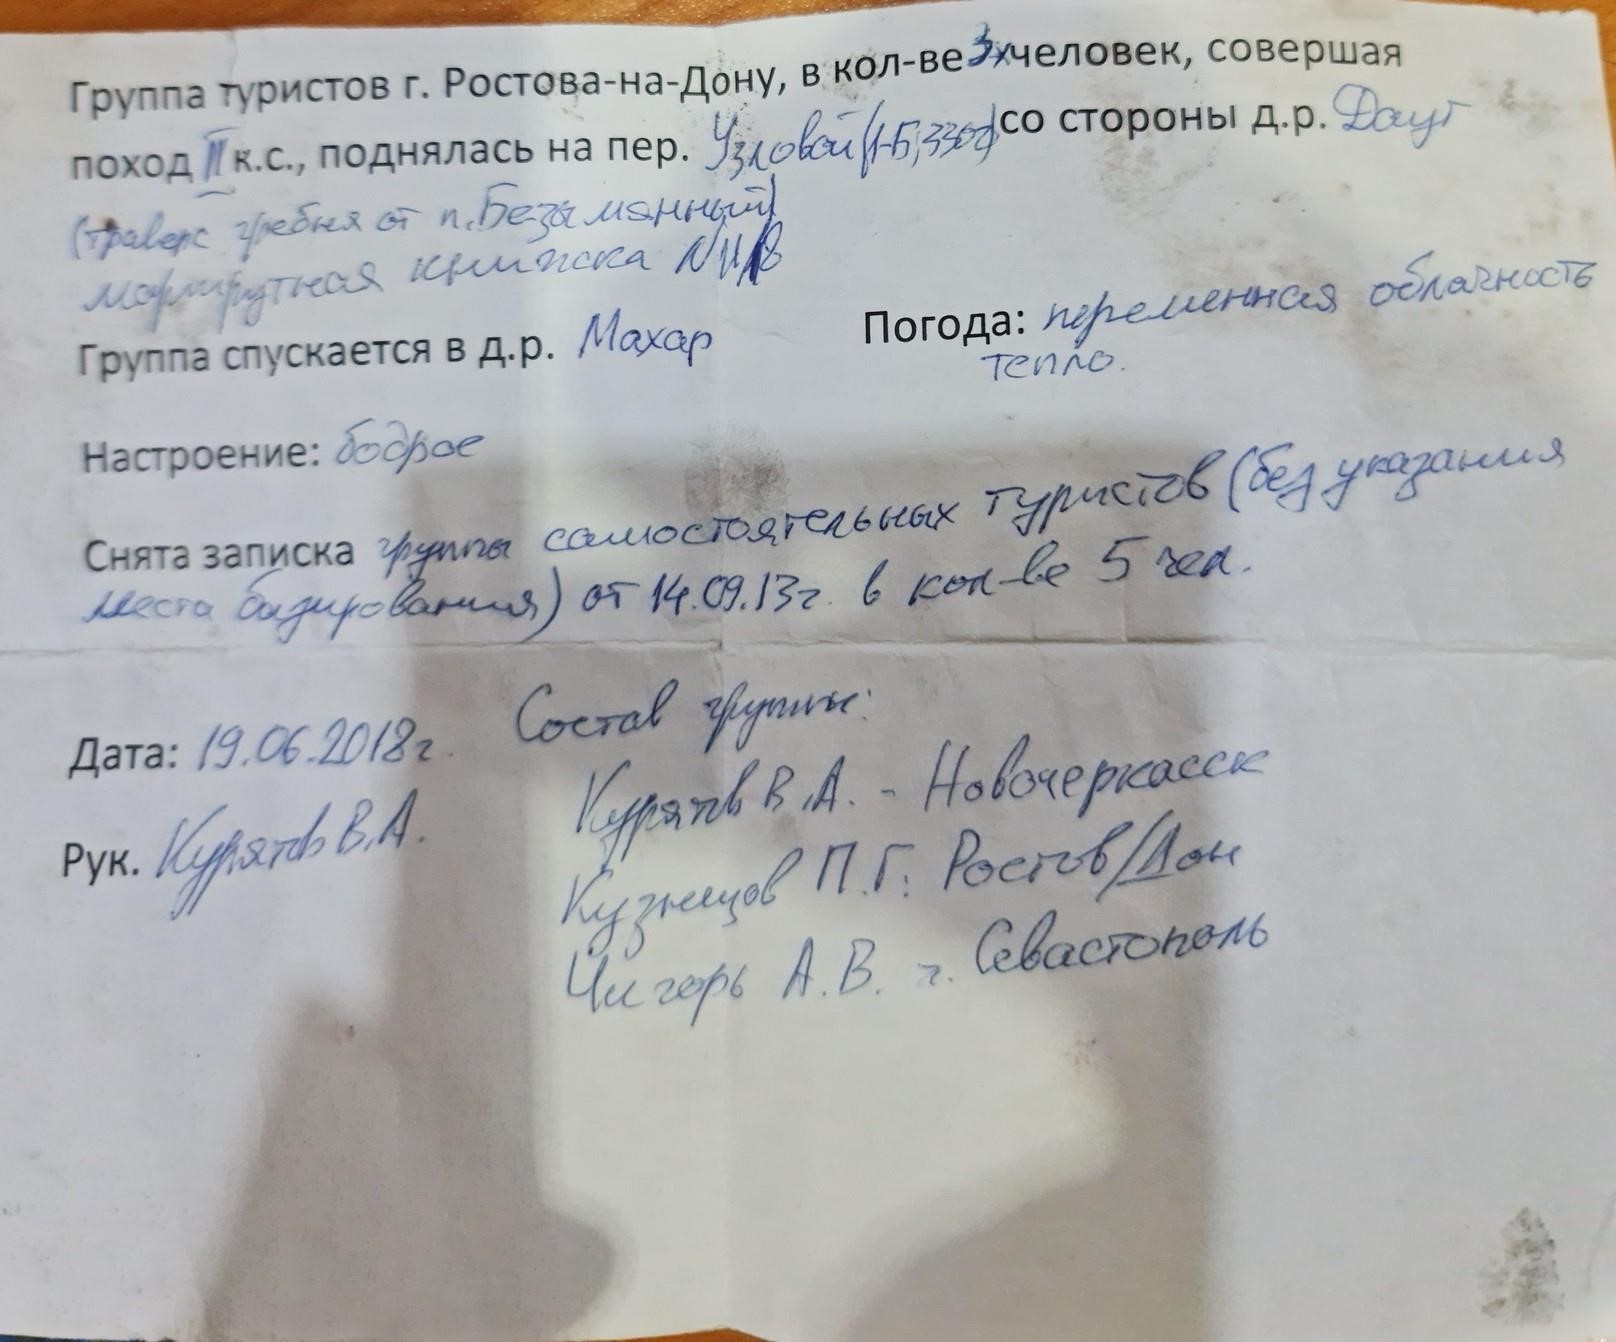 Группа туристов г. Ростова-на-Дону, в кол-ве 3х человек, совершая
поход II к.с., поднялась на пер. Узловой (1-Б, 3300) со стороны д.р. Даут
(траверс гребня от п. Безымянный)
маршрутная книжка N 11/18
Группа спускается в д.р. Махар Погода: переменная облачность
тепло.
Настроение: бодрое
Снята записка группы самостоятельных туристов (без указания
места базирования) от 14.09.13г. в кол-ве 5 чел.
Состав группы:
Дата: 19.06.2018г.
Курятов В.А. - Новочеркасск
Рук. Курятов В.А.
Кузнецов П.Г. Ростов/Дон
Чигорь А.В. г. Севастополь